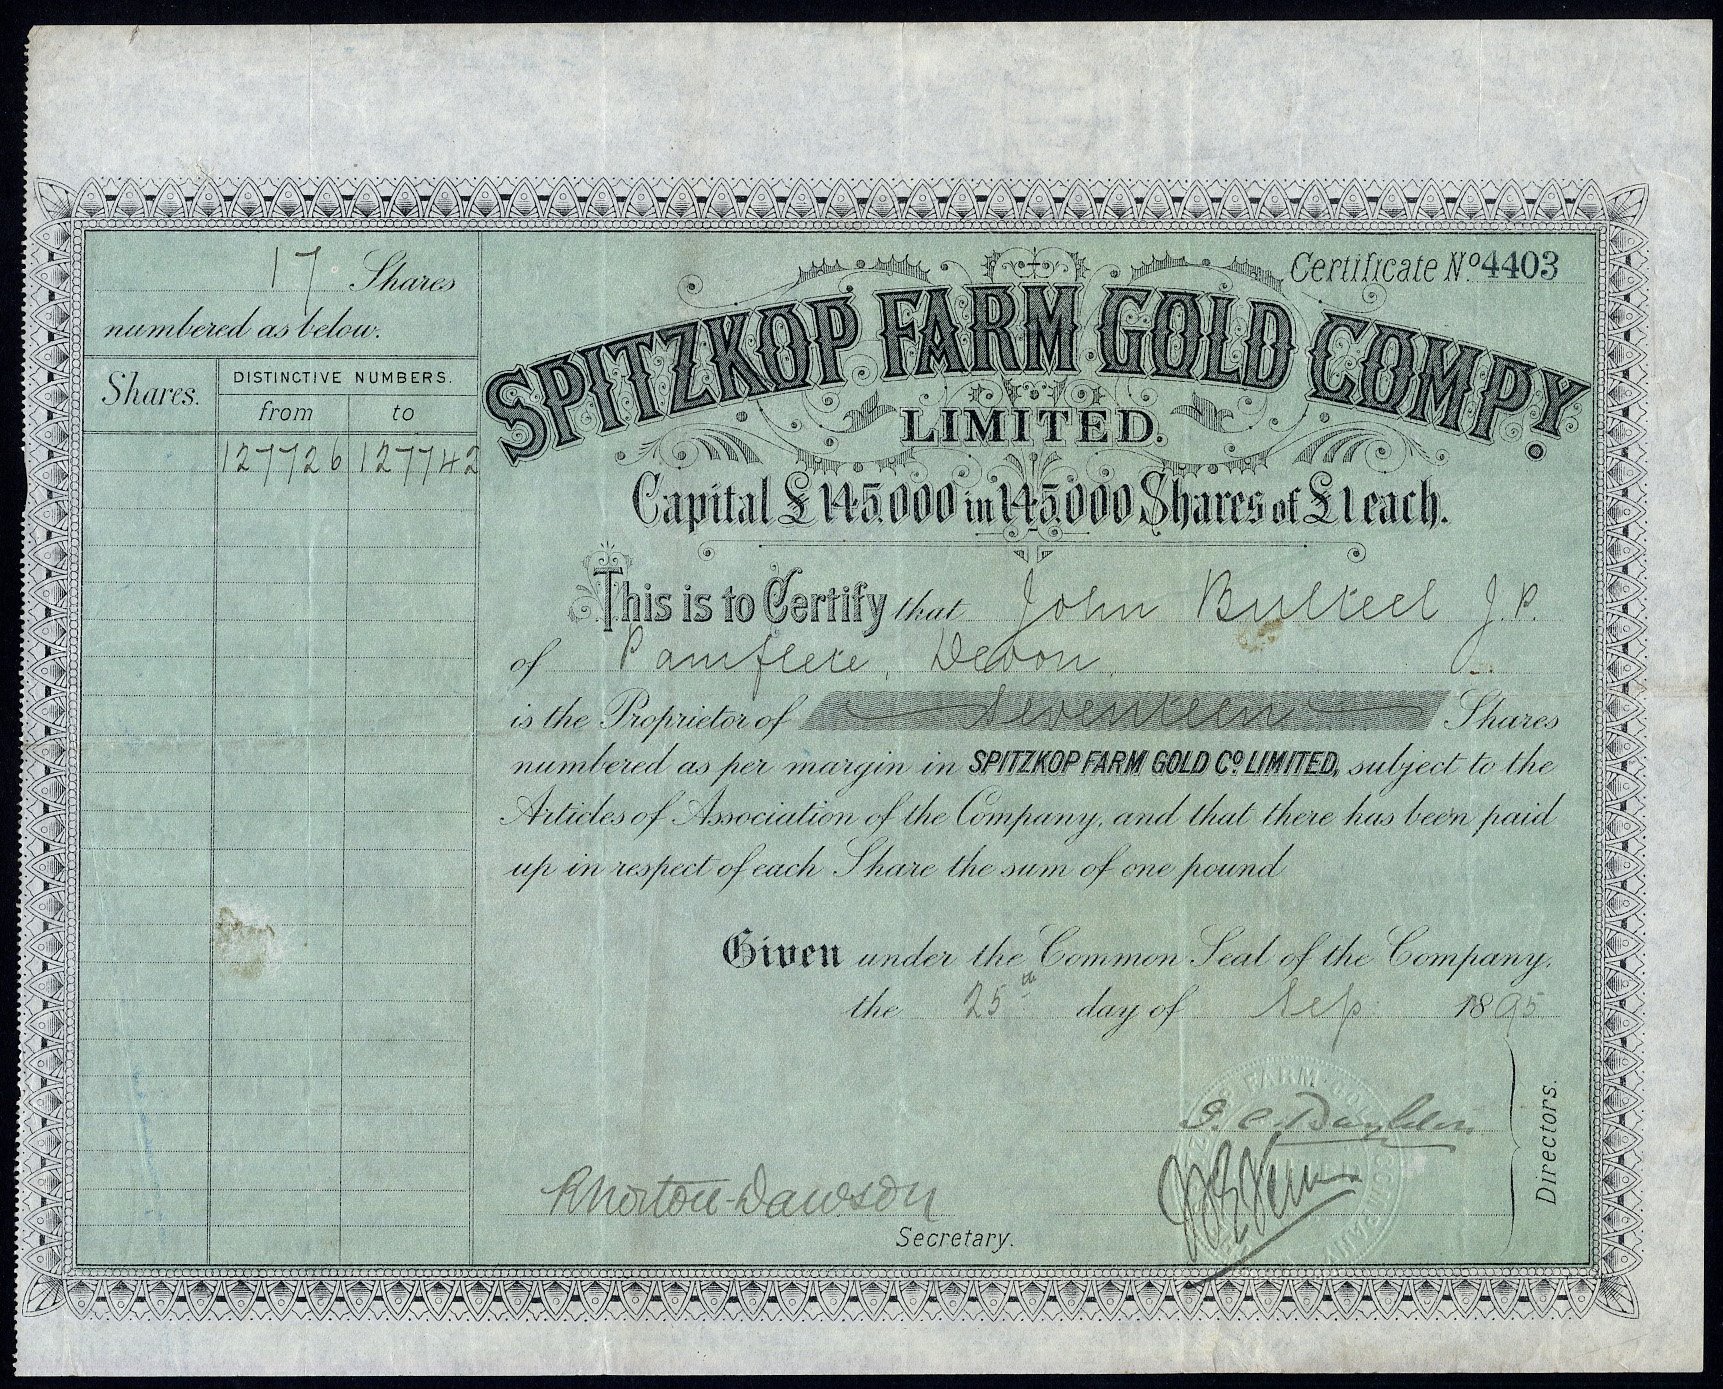 17 Shares
numbered as below.
Shares.
DISTINCTIVE NUMBERS.
from to
127726 127742
Certificate No. 4403
SPITZKOP FARM GOLD COMPY.
LIMITED.
Capital £145.000 in 145.000 Shares of £1 each.
This is to Certify that John Bulteel J.P.
of Pamflete, Devon,
is the Proprietor of Seventeen Shares
numbered as per margin in SPITZKOP FARM GOLD Co. LIMITED, subject to the
Articles of Association of the Company, and that there has been paid
up in respect of each Share the sum of one pound
Given under the Common Seal of the Company,
the 25th day of Sep. 1895
FARM
COMPANY
Directors.
R Norton-Dawson
Secretary.